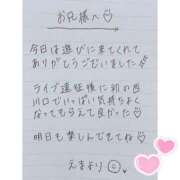 お兄様へ♡
今日は遊びに来てくれて
ありがとうございました
ライブ遠征様に初の西
川口でいっぱい気持ちよく
なってもらえて良かった♡
明日も楽しんできてね♡
えまより